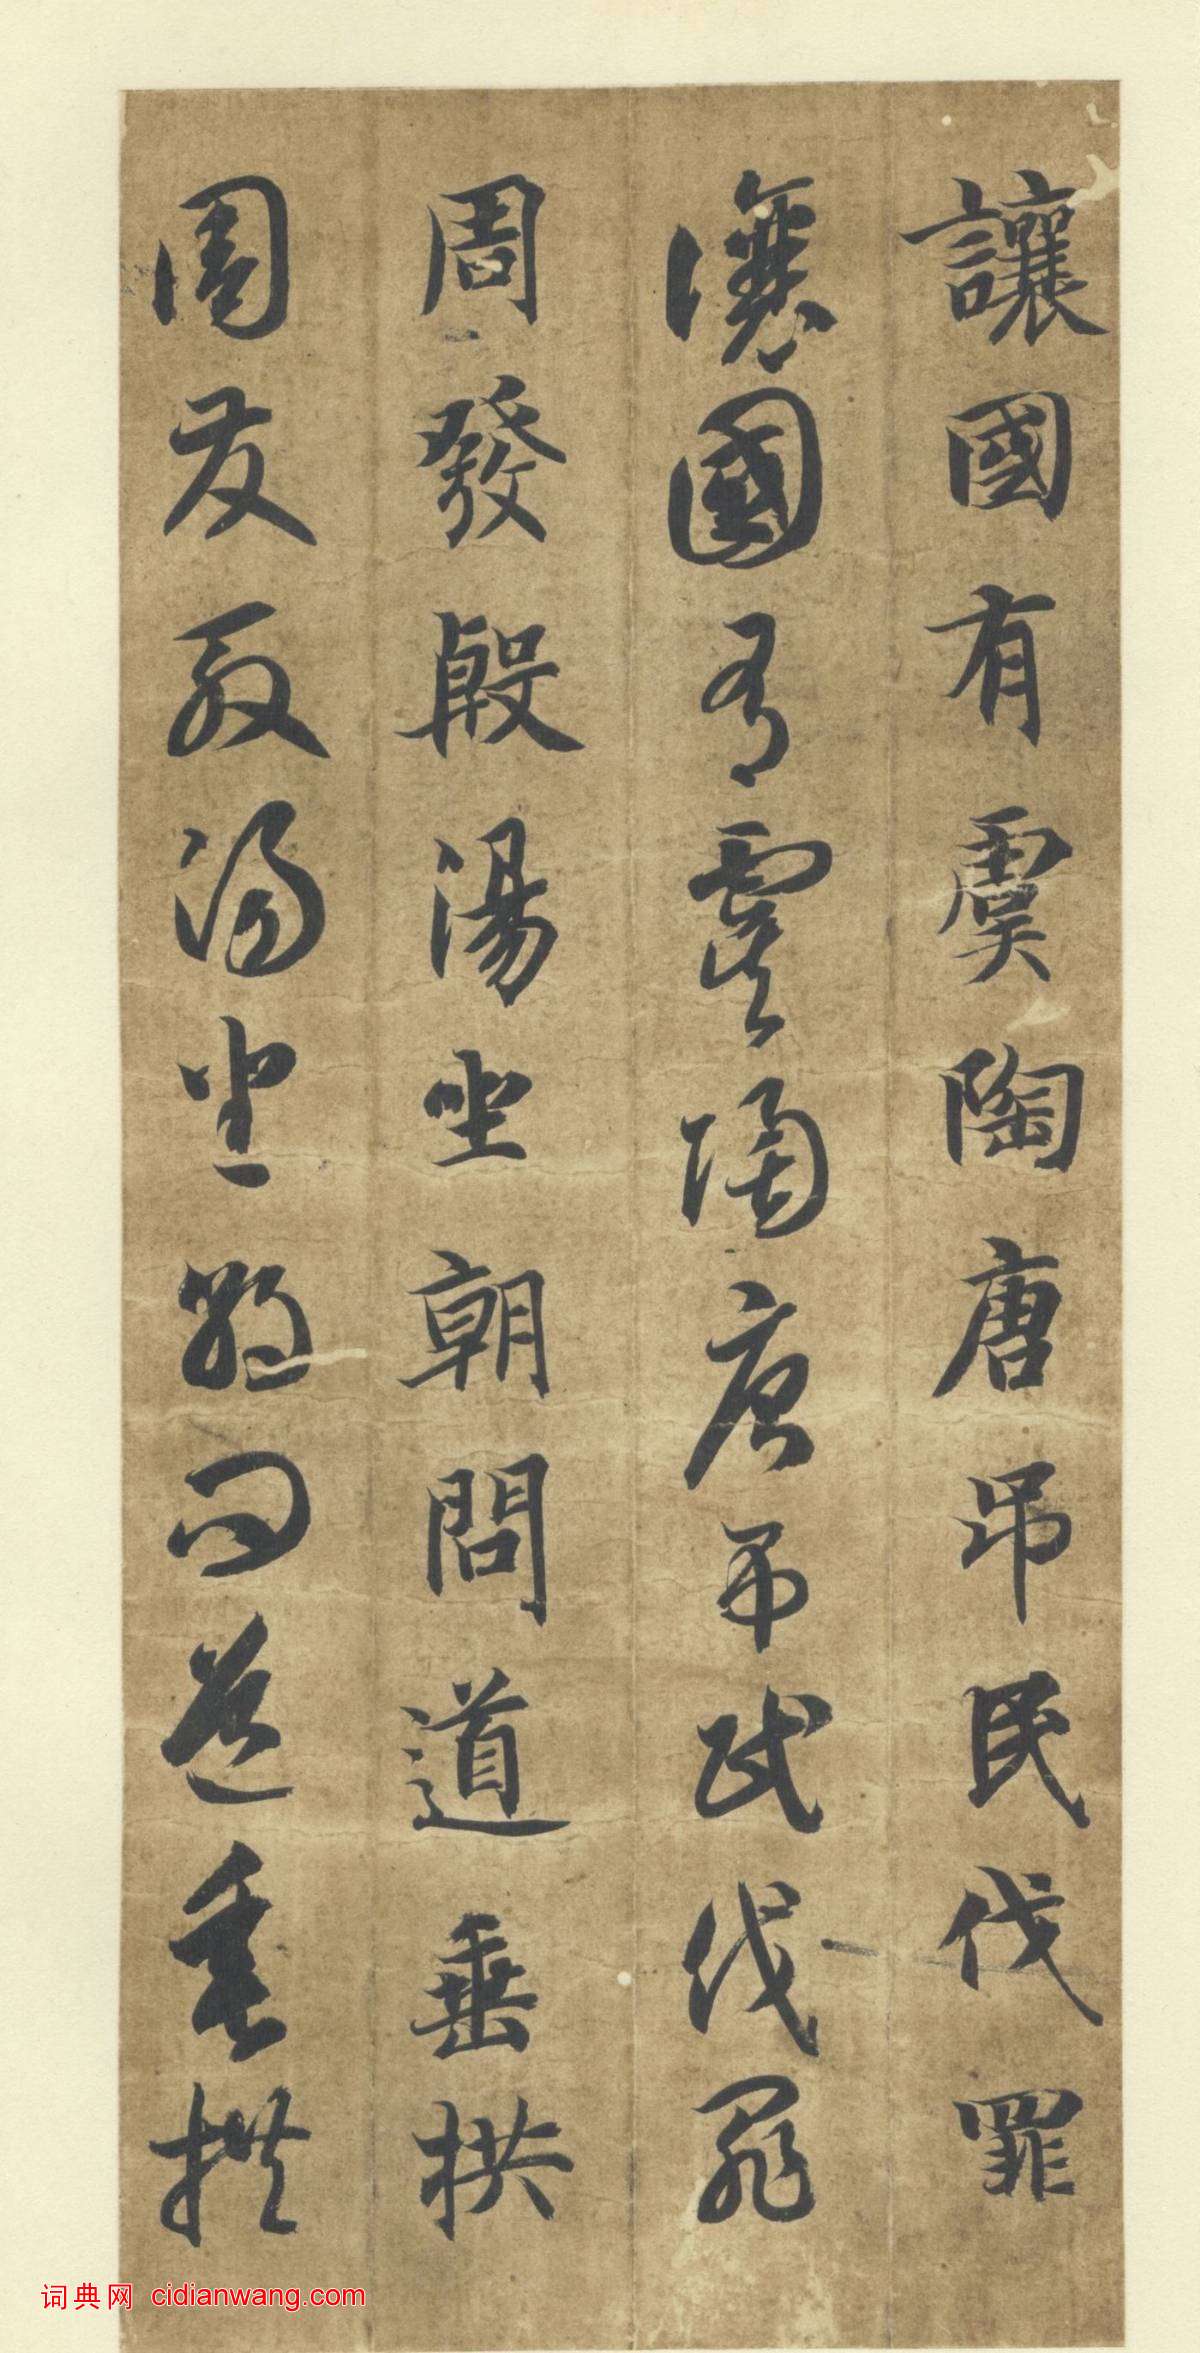 讓國有虞陶唐弔民伐罪
讓國有虞陶唐弔民伐罪
周發殷湯坐朝問道垂拱
周發殷湯坐朝問道垂拱
词典网 cidianwang.com